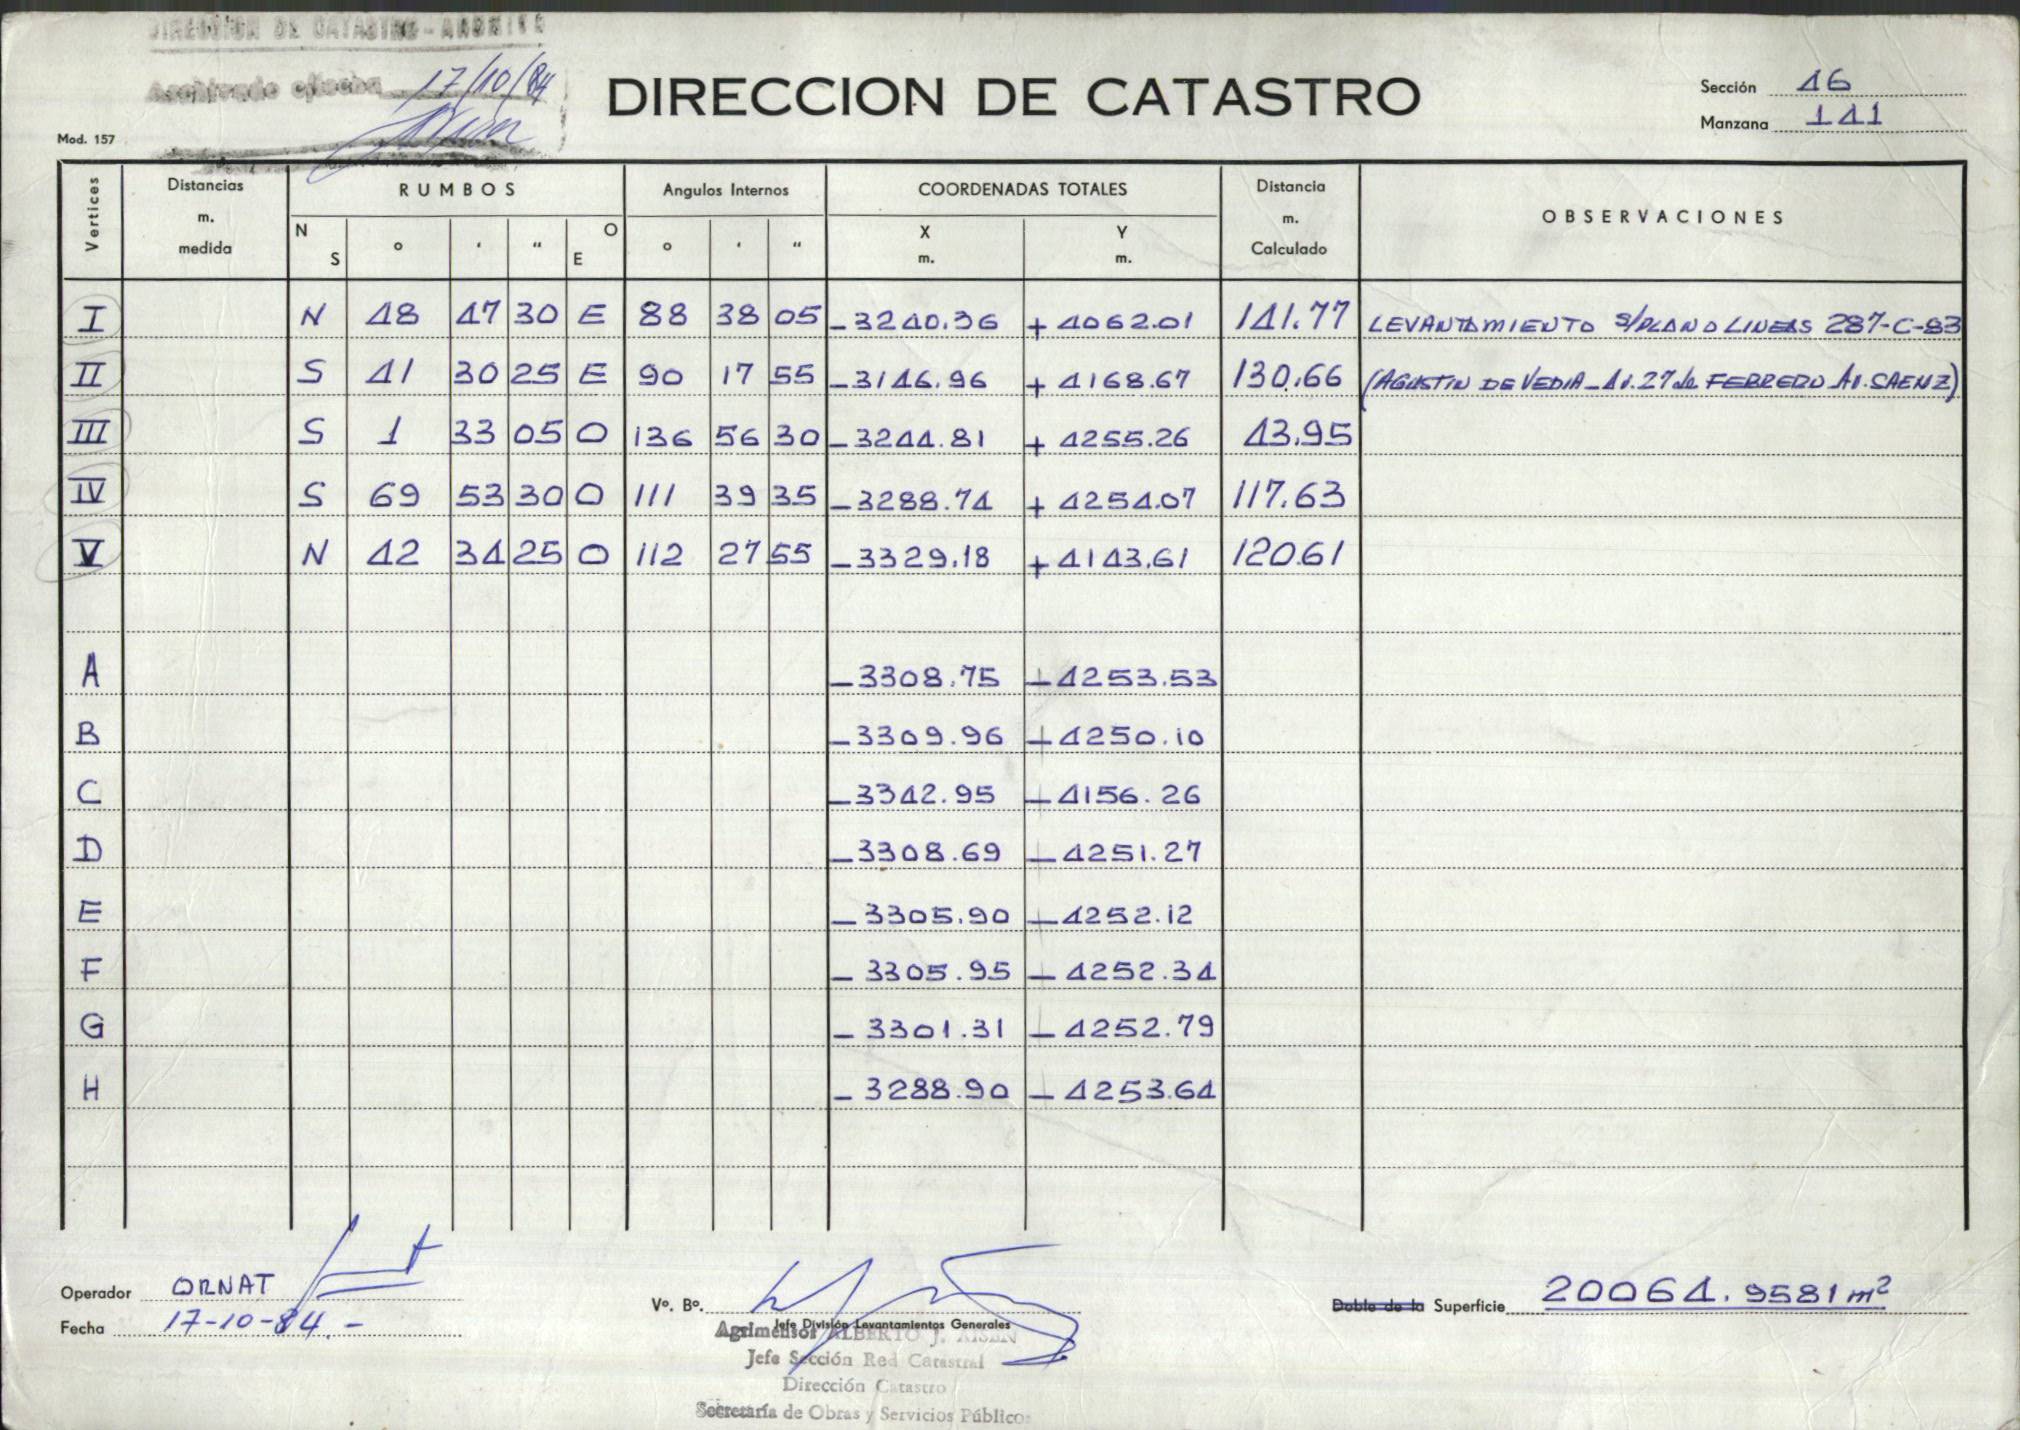 DIRECCION DE CATASTRO - ARCHIVO
Archivado c/fecha 17/10/84
DIRECCION DE CATASTRO
Sección 46
Manzana 141
Mod. 157
Vertices Distancias m. medida RUMBOS Angulos Internos COORDENADAS TOTALES Distancia m. Calculado OBSERVACIONES
N S ° ' " O E ° ' " X m. Y m.
I N 48 47 30 E 88 38 05 -3240.36 +4062.01 141.77 LEVANTAMIENTO S/PLANO LINEAS 287-C-83
II S 41 30 25 E 90 17 55 -3146.96 +4168.67 130.66 (AGUSTIN DE VEDIA - Av. 27 de FEBRERO Av. SAENZ)
III S 1 33 05 O 136 56 30 -3244.81 +4255.26 43.95
IV S 69 53 30 O 111 39 35 -3288.74 +4254.07 117.63
V N 42 34 25 O 112 27 55 -3329.18 +4143.61 120.61
A -3308.75 +4253.53
B -3309.96 +4250.10
C -3342.95 +4156.26
D -3308.69 +4251.27
E -3305.90 +4252.12
F -3305.95 +4252.34
G -3301.31 +4252.79
H -3288.90 +4253.64
Operador ORNAT
Fecha 17-10-84.-
Vº. Bº.
Jefe División Levantamientos Generales
Agrimensor ALBERTO J. AISEN
Jefe Sección Red Catastral
Dirección Catastro
Secretaría de Obras y Servicios Públicos
Doble de la Superficie 20064.9581 m²